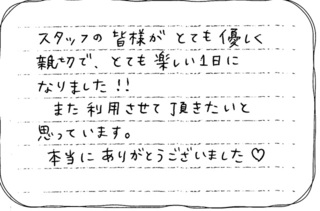 スタッフの皆様がとても優しく
親切で、とても楽しい1日に
なりました!!
また利用させて頂きたいと
思っています。
本当にありがとうございました♡